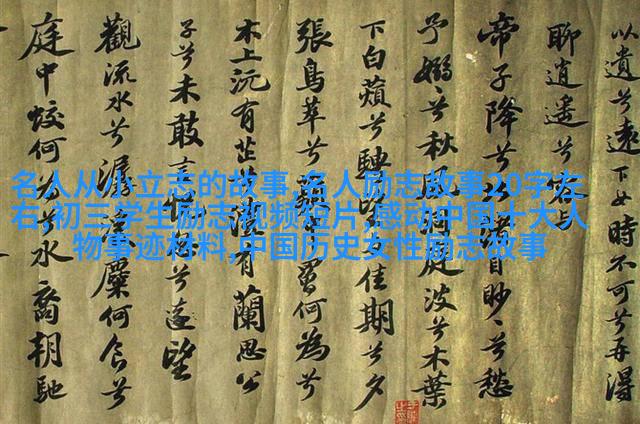 以遺兮遠下女時不可兮再得
聊逍遙兮
帝子降兮渚目眇々兮愁
予嫋々兮秋風洞庭波兮木葉
下白蘋兮騁佳期兮夕
張鳥萃兮罾何為兮
木上沅有芷澧有蘭思公
子兮未敢言兮遠望
觀流水兮潺湲麋何食兮
庭中蛟何為兮水裔朝馳
名人从小立志的故事,名人励志故事20字左
右,初三学生励志视频短片,感动中国十大人
物事迹材料,中国历史女性励志故事